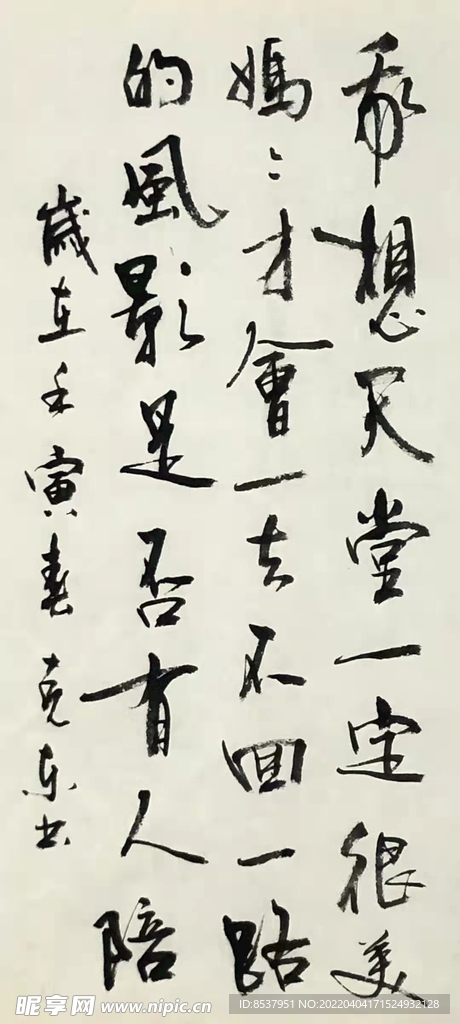 我想天堂一定很美
媽〻才會一去不回一路
的風影是否有人陪
歲在壬寅春克东书
昵享网 www.nipic.cn
ID:8537951 NO:20220404171524932128